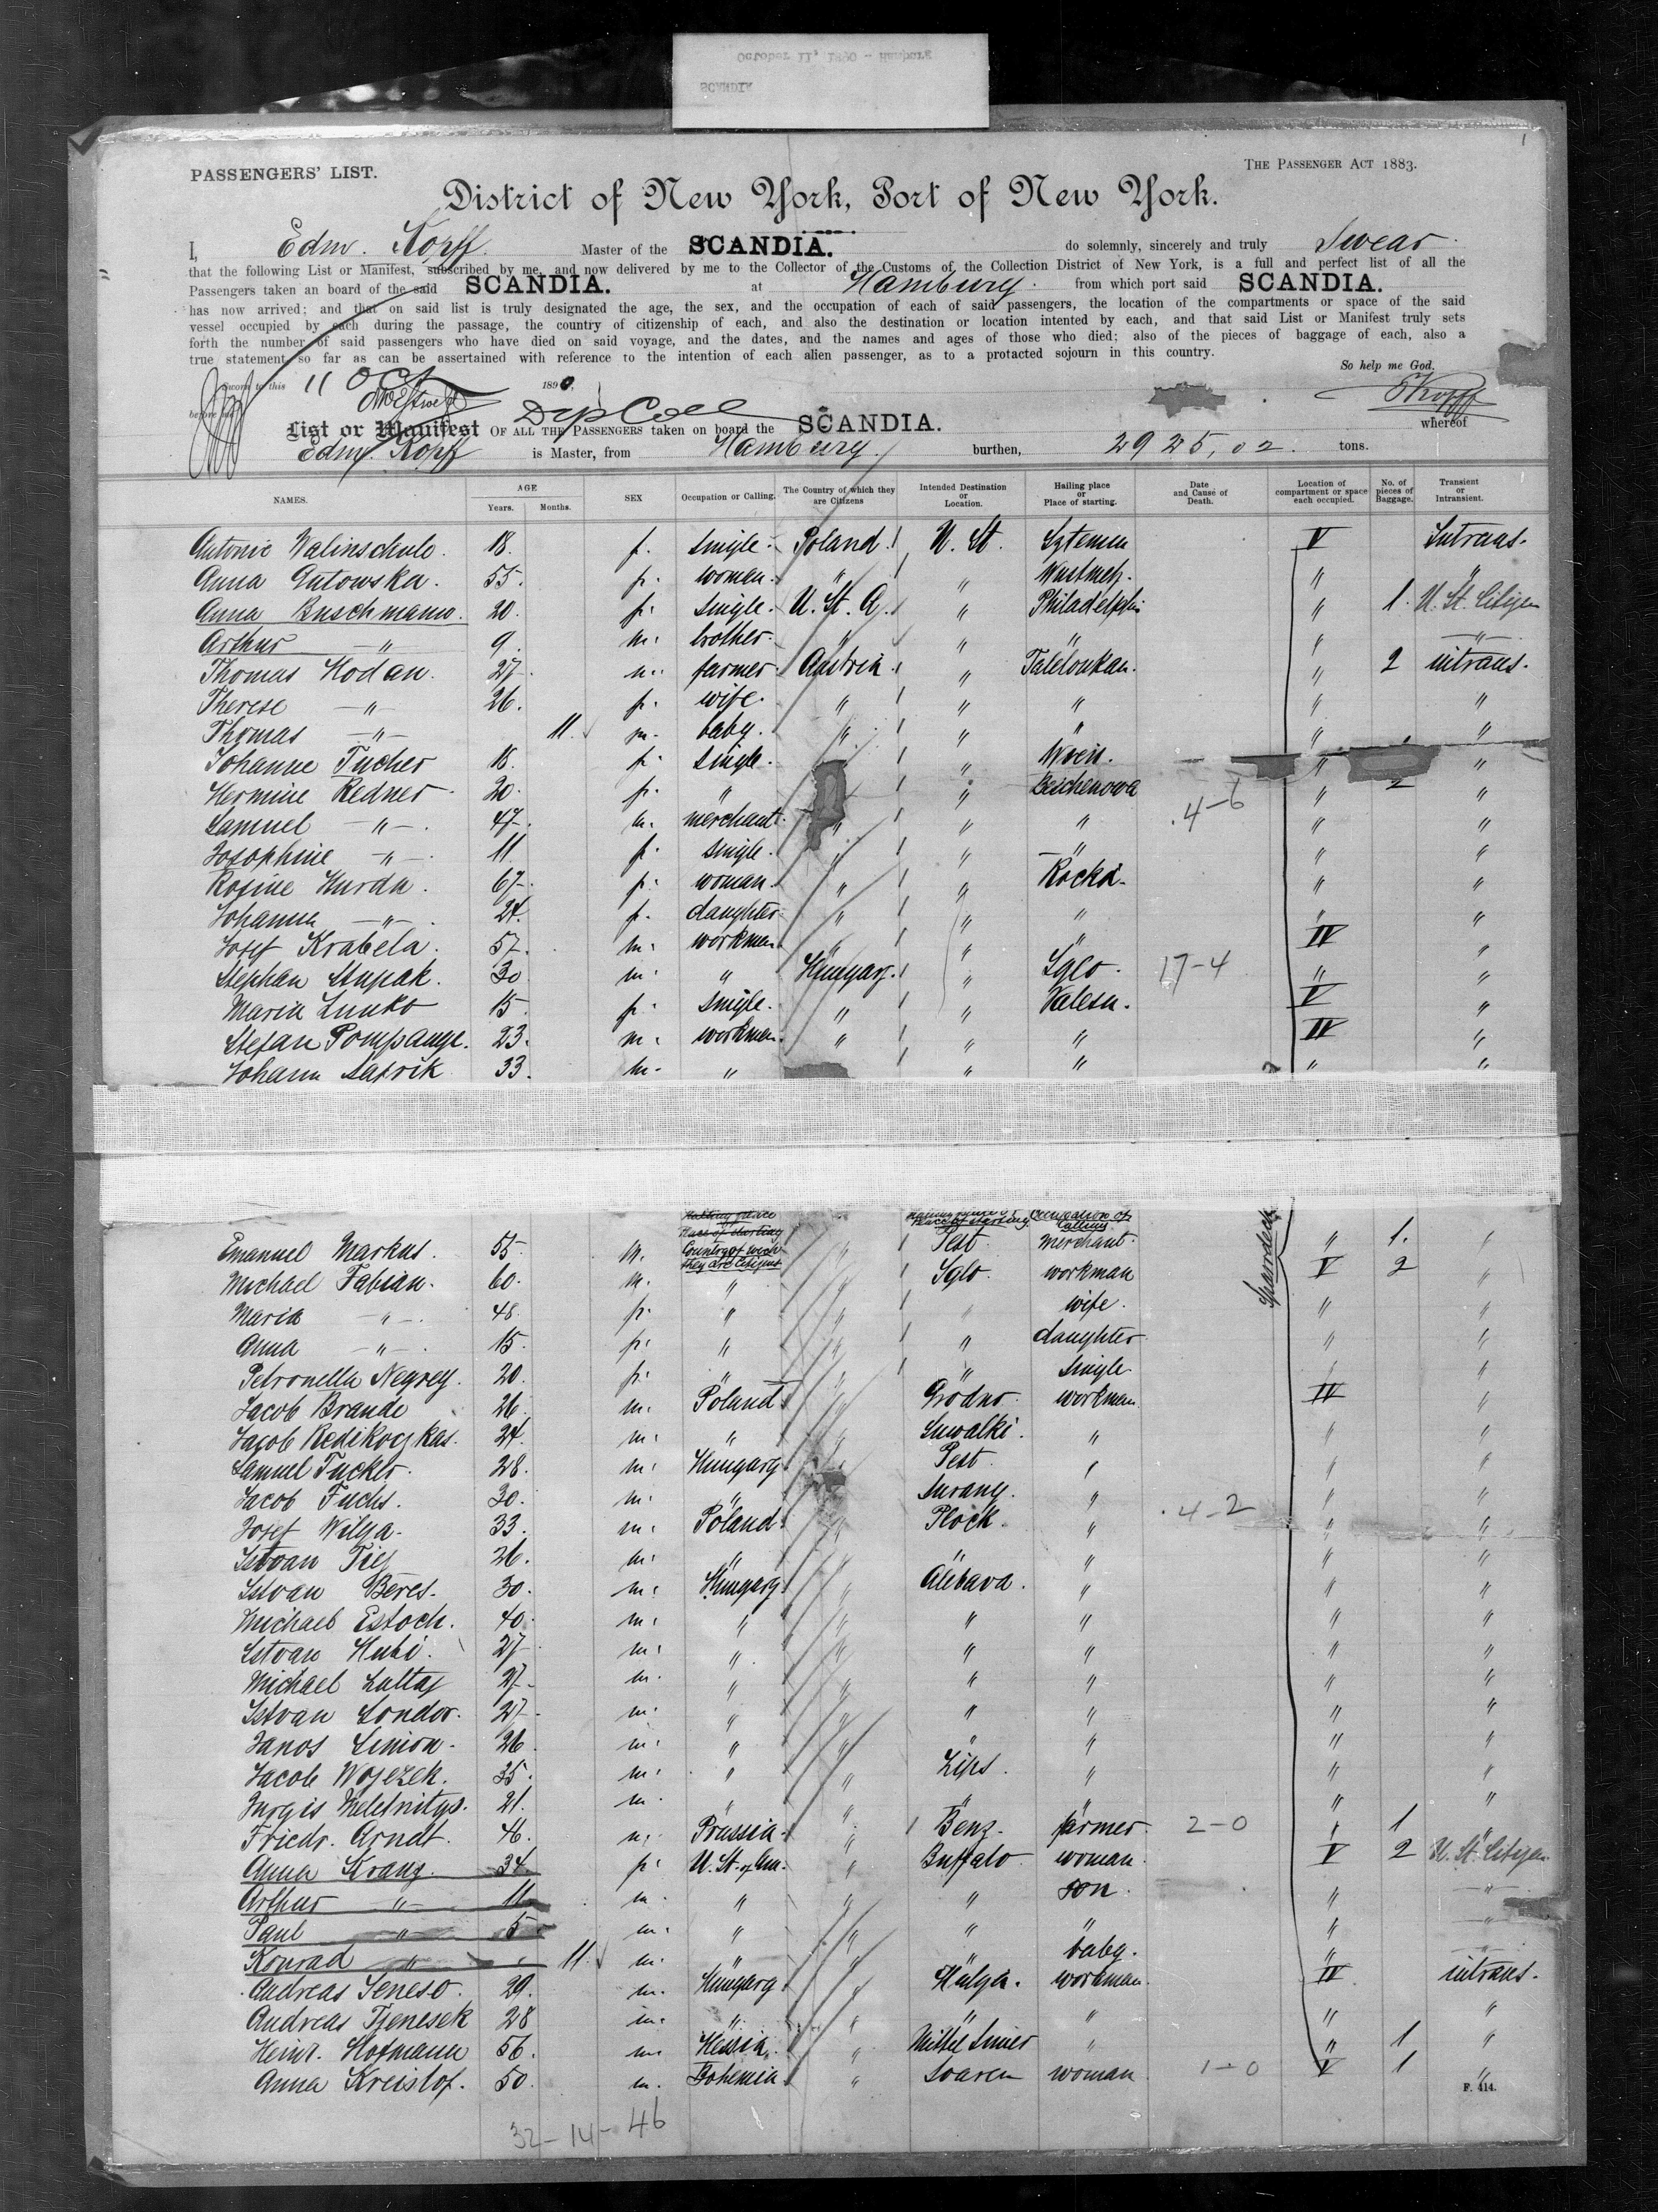 October 11, 1890 - Hamburg
SCANDIA
1
PASSENGERS' LIST.
THE PASSENGER ACT 1883.
District of New York, Port of New York.
I, Edm. Kopff Master of the SCANDIA. do solemnly, sincerely and truly Swear
that the following List or Manifest, subscribed by me, and now delivered by me to the Collector of the Customs of the Collection District of New York, is a full and perfect list of all the
Passengers taken an board of the said SCANDIA. at Hamburg. from which port said SCANDIA.
has now arrived; and that on said list is truly designated the age, the sex, and the occupation of each of said passengers, the location of the compartments or space of the said
vessel occupied by each during the passage, the country of citizenship of each, and also the destination or location intented by each, and that said List or Manifest truly sets
forth the number of said passengers who have died on said voyage, and the dates, and the names and ages of those who died; also of the pieces of baggage of each, also a
true statement so far as can be assertained with reference to the intention of each alien passenger, as to a protacted sojourn in this country.
So help me God.
Sworn to this 11 Oct 1890
before me
Dep Coll
Kopff
List or Manifest OF ALL THE PASSENGERS taken on board the SCANDIA. whereof
Edm. Kopff is Master, from Hamburg. burthen, 2925,02. tons.
NAMES. AGE Years. Months. SEX Occupation or Calling. The Country of which they are Citizens Intended Destination or Location. Hailing place or Place of starting. Date and Cause of Death. Location of compartment or space each occupied. No. of pieces of Baggage. Transient or Intransient.
Antonie 18. f. single. Poland. U. St. V Intrans.
Anna Gutowska. 55. f. woman. " " " "
Anna Buschmann. 20. f. single. U. St. A. " Philadelphia " 1. U. St. Citizen
Arthur -"- 9. m. brother. " " " " -"-
Thomas Hodan. 27. m. farmer. Austria. " " 2 intrans.
Therese -"- 26. f. wife. " " " " "
Thomas -"- 11. m. baby. " " " " "
Johanne Tucher 18. f. single. " " "
Hermine Redner 20. f. " " Beschenowa " 2 "
Samuel -"-. 47. m. merchant. " " " 4-6 " "
Josephine -"-. 11 f. single. " " " " "
Rosine Hurda. 67. f. woman. " " " "
Johanna -"-. 24. f. daughter. " " " " "
Josef Krabela. 57. m. workman. " " " IV "
Stephan Stupak. 30 m. " Hungary. " Iglo. 17-4 " "
Maria Lunko 15. f. single. " " V "
Stefan 23. m. workman. " " " IV "
Johann 33. m. " " " " "
Hailing place Place of starting Hailing place or Place of starting Occupation or Calling
Country of wich they are Citizens
Sparrdeck
Emanuel Markus. 55. m. " Pest. merchant. " 1. "
Michael Fabian. 60. m. " " Iglo. workman V 2 "
Maria -"-. 48. f. " " " wife. " "
Anna -"-. 15. f. " " " daughter " "
Petronella Negrey. 20. f. " " " single " "
Jacob Brande 26. m. Poland " Grodno workman IV "
Jacob 24. m. " " Suwalki. " " "
Samuel Tucker. 28. m. Hungary " Pest. " " "
Jacob Fuchs. 30. m. " " Surany. " 4-2 " "
Josef Wilga. 33. m. Poland. " Plock. " " "
Istvan 26. m. " " " " " "
Istvan Beres. 30. m. Hungary " " " "
Michael Estoch. 40. m. " " " " " "
Istvan Hubi. 27. m. " " " " " "
Michael 27. m. " " " " " "
Istvan Sondor. 27. m. " " " " " "
Janos Simon. 26. m. " " " " " "
Jacob 35. m. " " Zips. " " "
Jurgis 21. m. " " " " " "
Friedr. Arndt. 46. m. Prussia. " Benz. farmer 2-0 " 1 "
Anna Kranz. 34 f. U. St. of Am. " Buffalo woman. V 2 U. St. Citizen
Arthur -"- 11 m. " " " son. " -"-
Paul -"- 5 m. " " " " " -"-
Konrad -"- 11. m. " " " baby. " -"-
Andreas 29. m. Hungary " workman. IV intrans.
Andreas 28 m. " " " " " "
Heinr. Hofmann 56. m. Hessia. " " " 1 "
Anna 50. m. Bohemia " woman 1-0 V 1 "
F. 414.
32-14-46